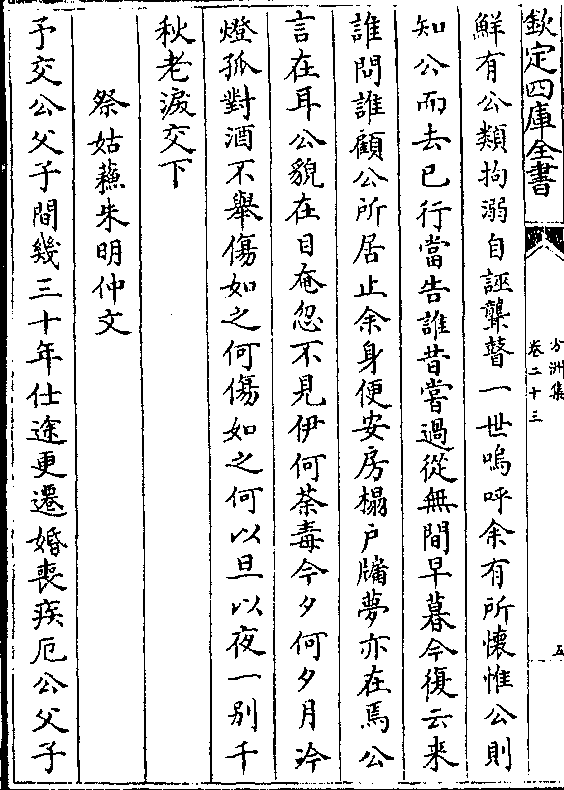 欽定四庫全書
方洲集
卷二十三
五
鮮有公類拘溺自誣龔瞽一世嗚呼余有所懷惟公則
知公而去已行當告誰昔嘗過從無間早暮今復云来
誰問誰顧公所居止余身便安房榻户牖夢亦在焉公
言在耳公貌在目奄忽不見伊何荼毒今夕何夕月冷
燈孤對酒不舉傷如之何傷如之何以旦以夜一别千
秋老淚交下
祭姑蘓朱明仲文
予交公父子間幾三十年仕途更遷婚喪疾厄公父子